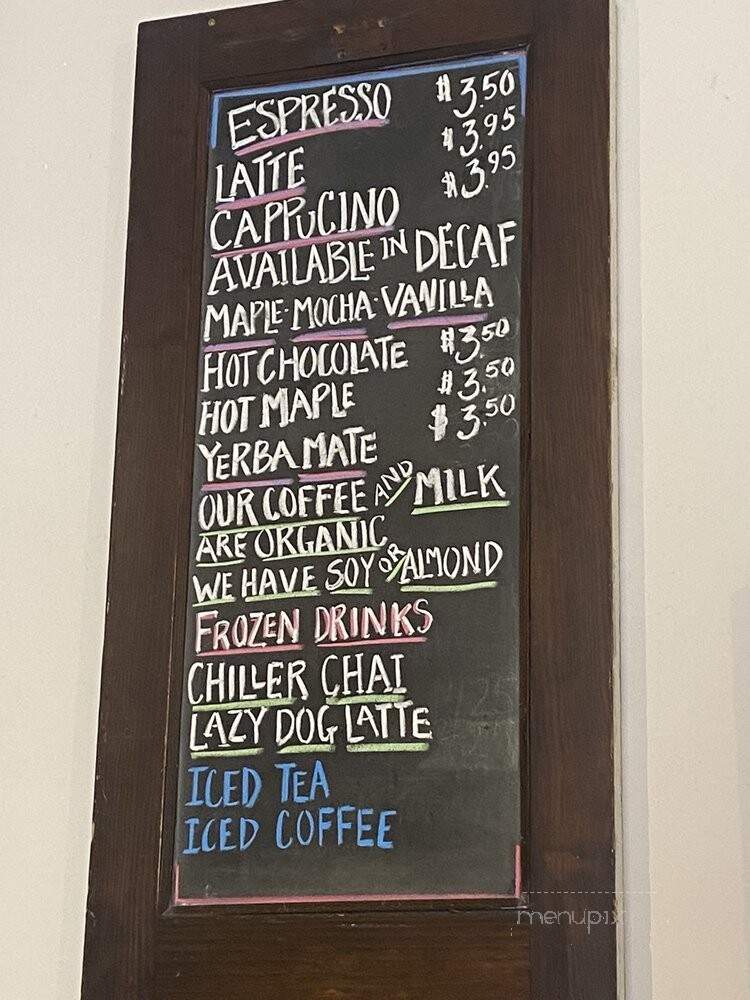 ESPRESSO $3.50
LATTE $3.95
CAPPUCINO $3.95
AVAILABLE IN DECAF
MAPLE·MOCHA·VANILLA
HOT CHOCOLATE $3.50
HOT MAPLE $3.50
YERBA MATE $3.50
OUR COFFEE AND MILK
ARE ORGANIC
WE HAVE SOY OR ALMOND
FROZEN DRINKS
CHILLER CHAI
LAZY DOG LATTE
ICED TEA
ICED COFFEE
menupix